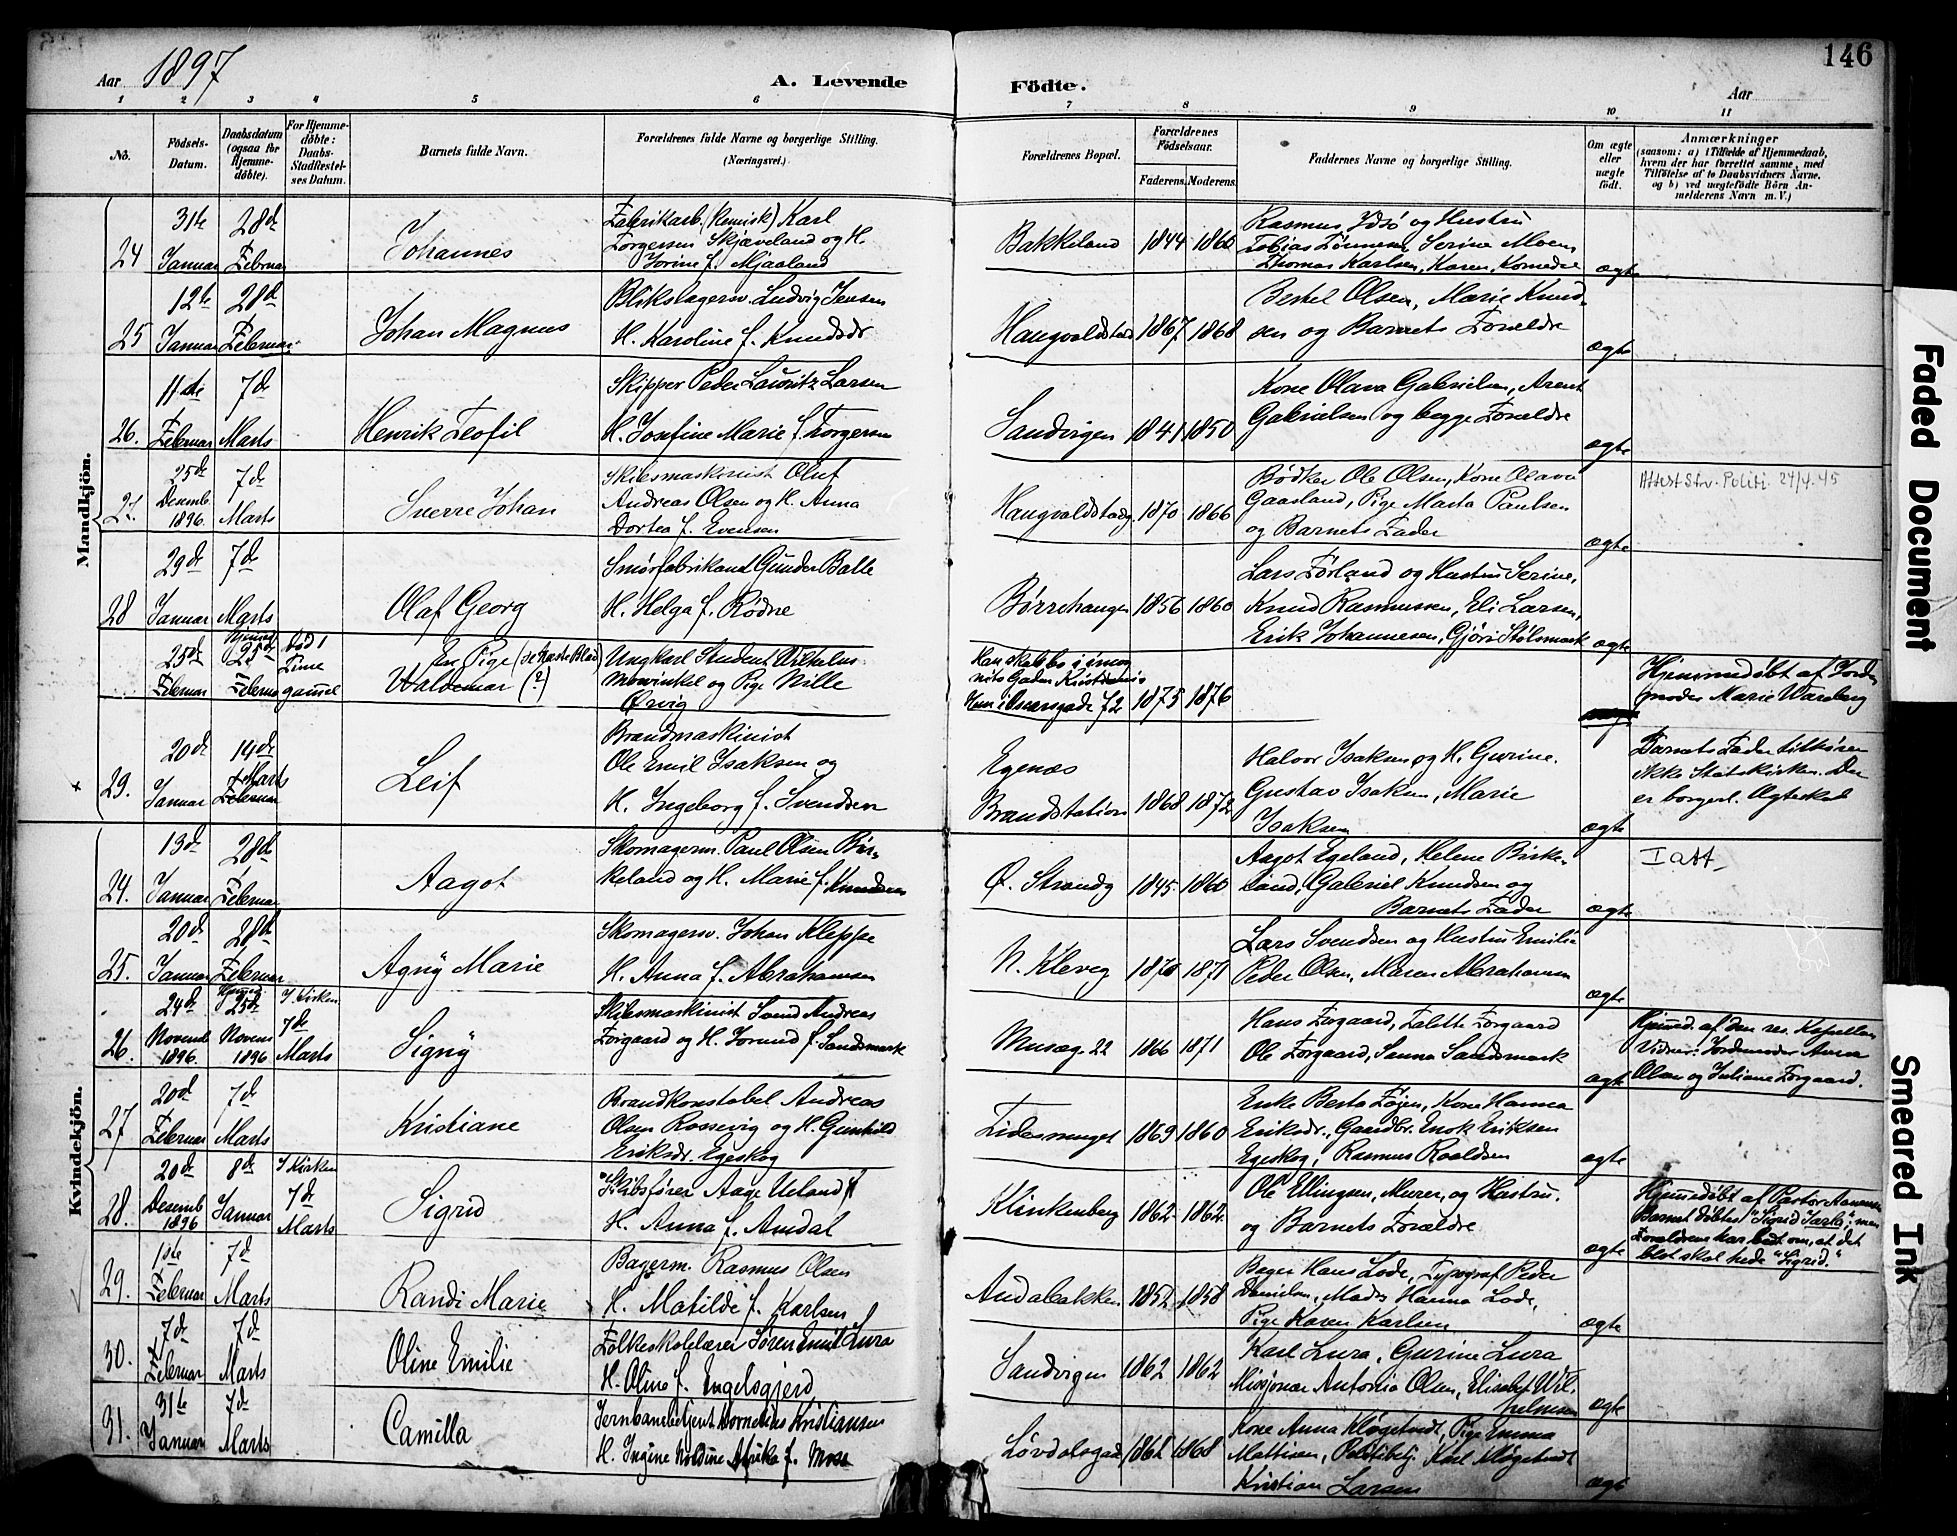 Aar 1897
A. Levende Födte.
146
Aar
1 2 3 4 5 6 7 8 9 10 11
No.
Födsels-Datum.
Daabsdatum (ogsaa for Hjemme-döbte).
For Hjemme-döbte: Daabs-Stadfæstel-ses Datum.
Barnets fulde Navn.
Forældrenes fulde Navne og borgerlige Stilling. (Næringsvei.)
Forældrenes Bopæl.
Forældrenes Födselsaar.
Faderens. Moderens.
Faddernes Navne og borgerlige Stilling.
Om ægte eller uægte födt.
Anmærkninger
(saasom: a) i Tilfælde af Hjemmedaab, hvem der har forrettet samme, med Tilföielse af to Daabsvidners Navne. og b) ved uægtefödte Börn An-melderens Navn m. V.)
Mandkjön.
24 31te Januar 28de Februar Johannes
Fabrikarb. (kemisk) Karl
Torgersen Skjæveland og H.
Jorine f. Mjaaland
Bakkeland 1844 1860
Rasmus Idsö og Hustru
Tobias Tönnesen, Serine Moen
Thomas Karlsen, Karen
ægte
25 12te Januar 28de Februar Johan Magnus
Blikslagersv. Ludvig Jensen
H. Karoline f. Knudsdr
Haugvaldstad 1867 1868
Bertel Olsen, Marie Knud-
sen og Barnets Forældre
ægte
26. 11te Februar 7de Marts Henrik Teofil
Skipper Peder Lauritz Larsen
H. Josefine Marie f. Torgersen
Sandvigen 1841 1850
Kone Olava Gabrielsen, Arent
Gabrielsen og begge Forældre
ægte
27. 25de Desemb 1896. 7de Marts Sverre Johan
Skibsmaskinist Oluf
Andreas Olsen og H. Anna
Dortea f. Evensen
Haugvaldstadg. 1870 1866
Bødker Ole Olsen, Kone Olava
Gaasland, Pige Marta Paulsen
og Barnets Fader
ægte
Attest Stv. Politi 24/4.45
28 29de Januar 7de Marts Olaf Georg
Smørfabrikant Gunder Balle
H. Helga f. Rødne
Børrehaugen 1856 1860
Lars Førland og Hustru Serine,
Knud Rasmussen, Eli Larsen,
Erik Johannesen, Gjöri Stölsmark
ægte
25de Februar Hjemme 25de Februar død 1 Time gammel
En Pige (se næste Blad)
Waldemar (?)
Ungkarl Student Vilhelm
Mowinkel og Pige Nille
Ørvig
1875 1876
Hjemmedøbt af Jord-
moder Marie Warberg
29. 20de Januar 14de Marts Februar Leif
Brandmaskinist
Ole Emil Isaksen og
H. Ingeborg f. Svendsen
Egenæs
Brandstation 1868 1872
Halvor Isaksen og H. Gurine.
Gustav Isaksen, Marie
Isaksen
ægte
Barnets Fader tilhører
ikke Statskirken. Der
er borgerl. Ægteskab
Kvindekjön.
24. 13de Januar 28de Februar Aagot
Skomagerm. Paul Olsen Bir-
keland og H. Marie f. Knudsen
Ø. Strandg 1845 1860
Aagot Egeland, Helene Birke-
land, Gabriel Knudsen og
Barnets Fader
ægte
I att.
25. 20de Januar 28de Februar Agny Marie
Skomagersv. Johan Kleppe
H. Anna f. Abrahamsen
N. Kleveg 1870 1871
Lars Svendsen og Hustru Emilie
Peder Olsen, Maren Abrahamsen
ægte
26. 24de Novemb 1896. Hjemme 25de Novem 1896 I Kirken 7de Marts Signy
Skibsmaskinist Svend Andreas
Torgaard og H. Jorund f. Sandsmark
Musæg. 22 1866 1871
Hans Torgaard, Talette Torgaard
Ole Torgaard, Sanna Sandsmark
ægte
Hjemmed. af den res. Kapellan
Vidner: Jordemoder Anna
Olsen og Juliane Torgaard.
27 20de Februar 7de Marts Kristiane
Brandkonstabel Andreas
Olsen Rossevig og H. Gunhild
Eriksdr. Egeskog
1869 1860
Enke Berta Tøgen, Kone Hanna
Eriksdr., Gaardbr. Enok Eriksen
Egeskog, Rasmus Roaldsen
ægte
28. 20de Desemb 1896 8de Januar I Kirken 7de Marts Sigrid
Skibsfører Aage Ueland
H. Anna f. Amdal
Klinkenberg 1862 1862
Ole Ellingsen, Murer, og Hustru.
og Barnets Forældre
ægte
Hjemmedøbt af Pastor
Barnet døbtes "Sigrid Jarls"; men
Forældrene har bedt om, at det
blot skal hede "Sigrid."
29. 1ste Februar 7de Marts Randi Marie
Bagerm. Rasmus Olsen
H. Matilde f. Karlsen
Andabakken 1852 1858
Bager Hans Lode, Typograf Peder
Danielsen, Mad. Hanna Lode,
Pige Karen Karlsen
ægte
30. 7de Februar 7de Marts Oline Emilie
Folkeskolelærer Søren Emil Lura
H. Oline f. Engelsgjerd
Sandvigen 1862 1862
Karl Lura, Gurine Lura
Missjonær Antonio Olsen, Elisabet Wil-
helmsen
ægte
31. 31te Januar 7de Marts Camilla
Jernbanebetjent Kornelius Kristiansen
H. Ingine Noldine Afrika f. Moss
Løvdalsgad 1868
Kone Anna Kløgetvedt, Pige Emma
Mattisen, Politibetj. Karl Kløgetvedt
Kristian Larsen
ægte
Faded Document
Smeared Ink